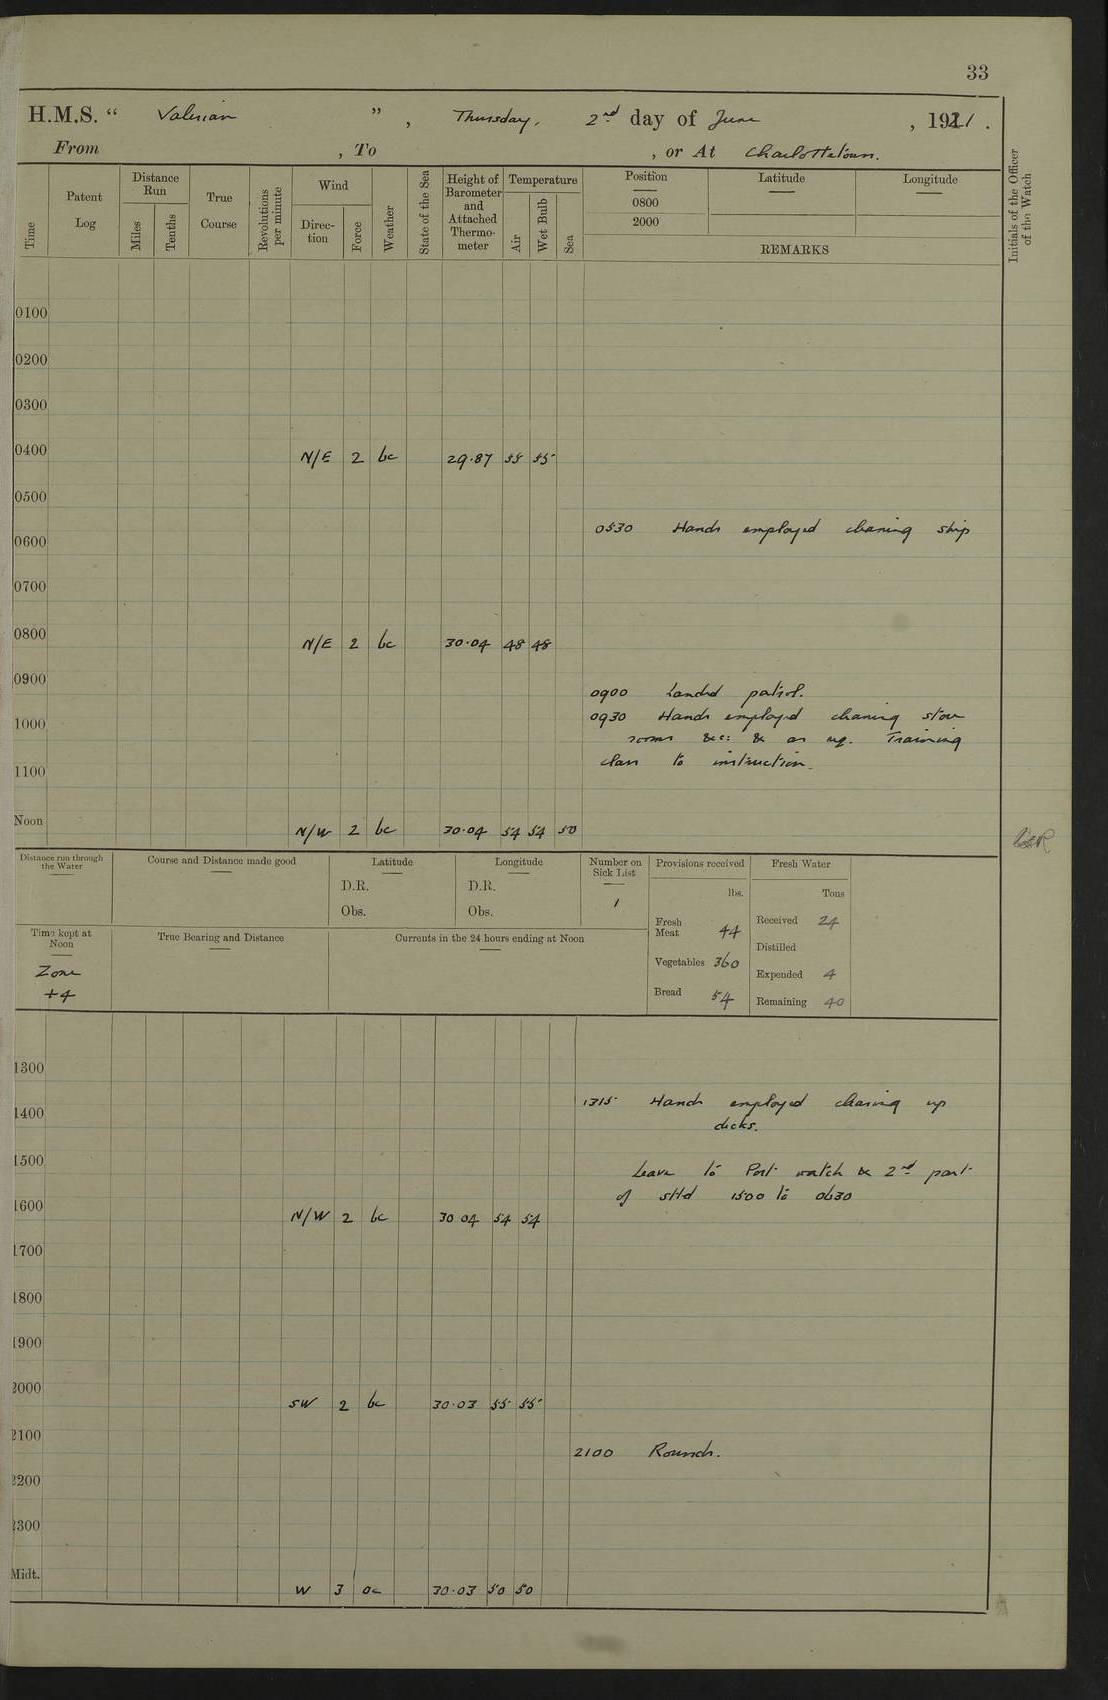 33
H.M.S. “ Valerian ” , Thursday, 2nd day of June , 1921 .
From , To , or At Charlottetown.
Time
Patent Log
Distance Run
Miles
Tenths
True Course
Revolutions per minute
Wind
Direction
Force
Weather
State of the Sea
Height of Barometer and Attached Thermometer
Temperature
Air
Wet Bulb
Sea
Position
0800
2000
Latitude
Longitude
REMARKS
Initials of the Officer of the Watch
0100
0200
0300
0400 N/E 2 bc 29.87 55 55
0500
0530 Hands employed cleaning ship
0600
0700
0800 N/E 2 bc 30.04 48 48
0900
0900 Landed patrol.
0930 Hands employed cleaning store
1000
rooms &c: & as req. Training
class to instruction.
1100
Noon N/W 2 bc 30.04 54 54 50
Distance run through the Water
Course and Distance made good
Latitude
D.R.
Obs.
Longitude
D.R.
Obs.
Number on Sick List
1
Provisions received
lbs.
Fresh Meat 44
Vegetables 360
Bread 54
Fresh Water
Tons
Received 24
Distilled
Expended 4
Remaining 40
Time kept at Noon
Zone
+4
True Bearing and Distance
Currents in the 24 hours ending at Noon
1300
1315 Hands employed cleaning up
1400
decks.
1500
Leave to Port watch & 2nd part
of stbd 1500 to 0630
1600 N/W 2 bc 30 04 54 54
1700
1800
1900
2000 SW 2 bc 30.03 55 55
2100
2100 Rounds.
2200
2300
Midt. W 3 oc 30.03 50 50